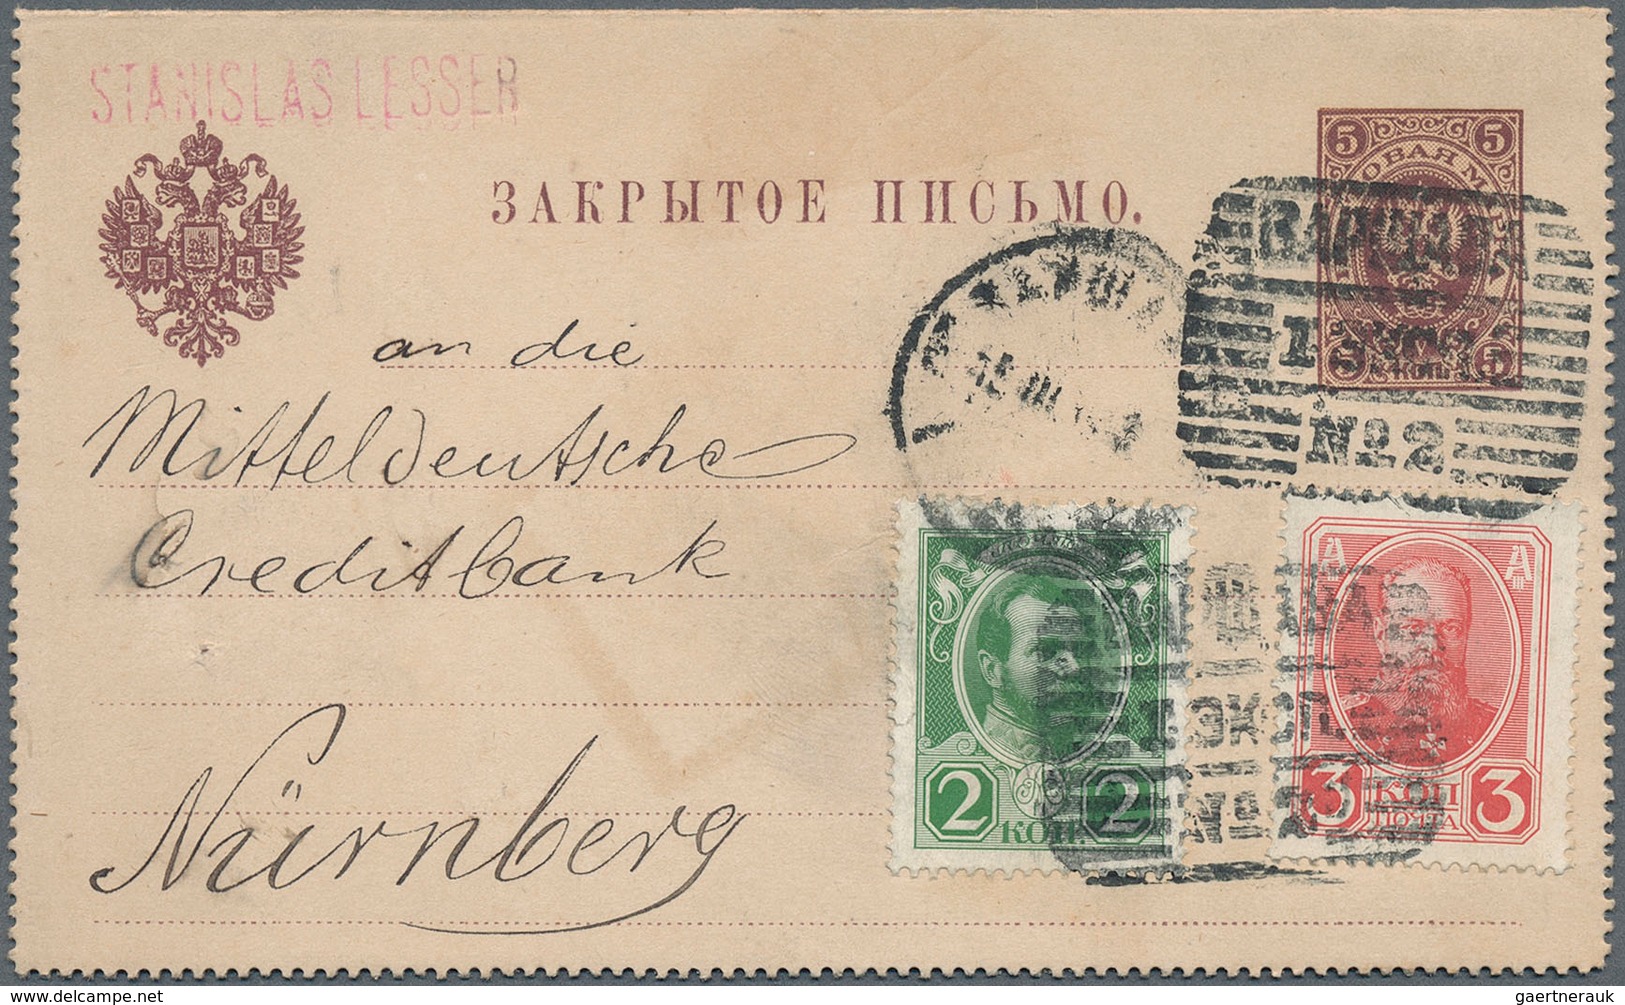 STANISLAS LESSER
ЗАКРЫТОЕ ПИСЬМО.
5 5
5 5
ВАРШАВА
№ 2
ВАРШАВА
15 III
an die
Mitteldeutsche
Creditbank
Nürnberg
2 КОП. 2
ВАРШАВА
I ЭКСП.
№ 2
А А
3 КОП 3
ПОЧТА
delcampe.net
gaertnerauk